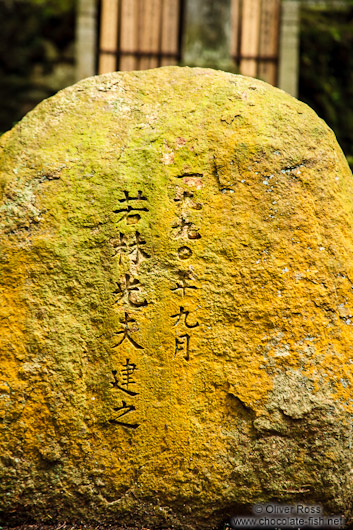 一九九〇年九月
若林光夫建之
© Oliver Ross
www.chocolate-fish.net